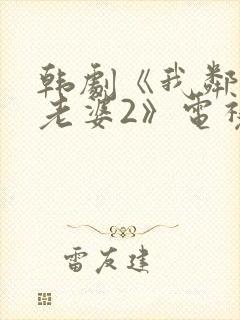 韩劇《我鄰
老婆2》電視
雷友建